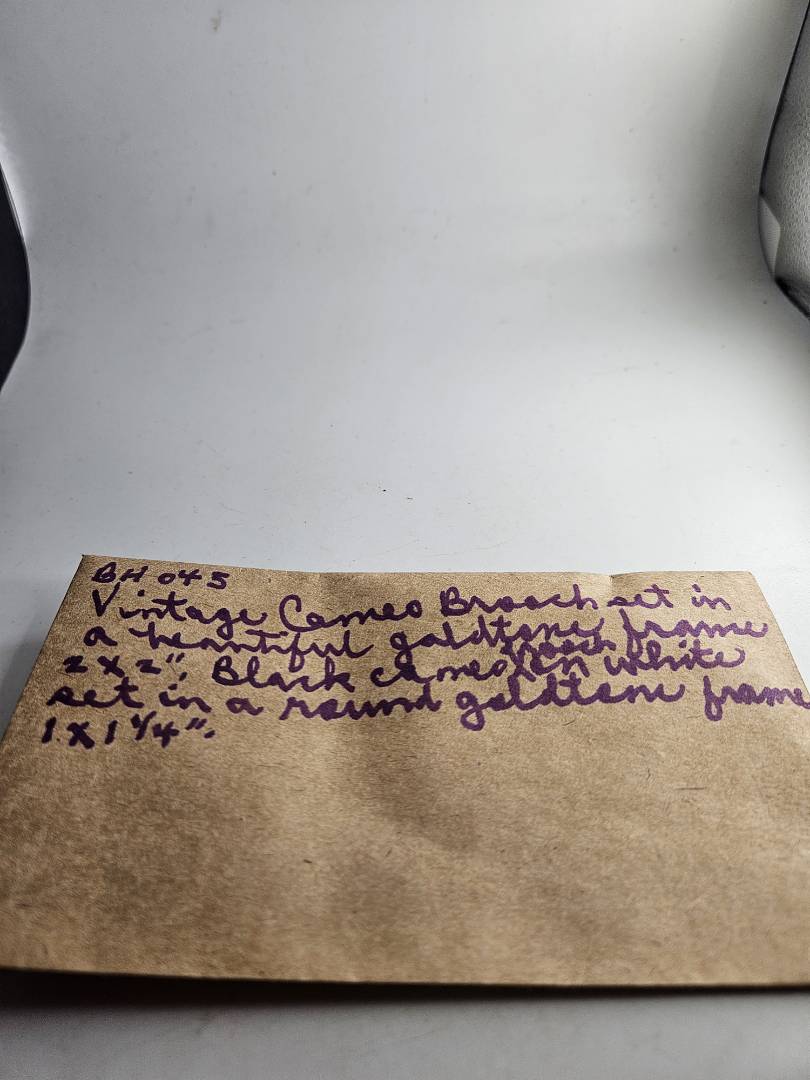 BH 045
Vintage Cameo Brooch set in
a beautiful goldtone frame
2 x 2", Black cameo brooch on white
set in a round goldtone frame
1 x 1 1/4".